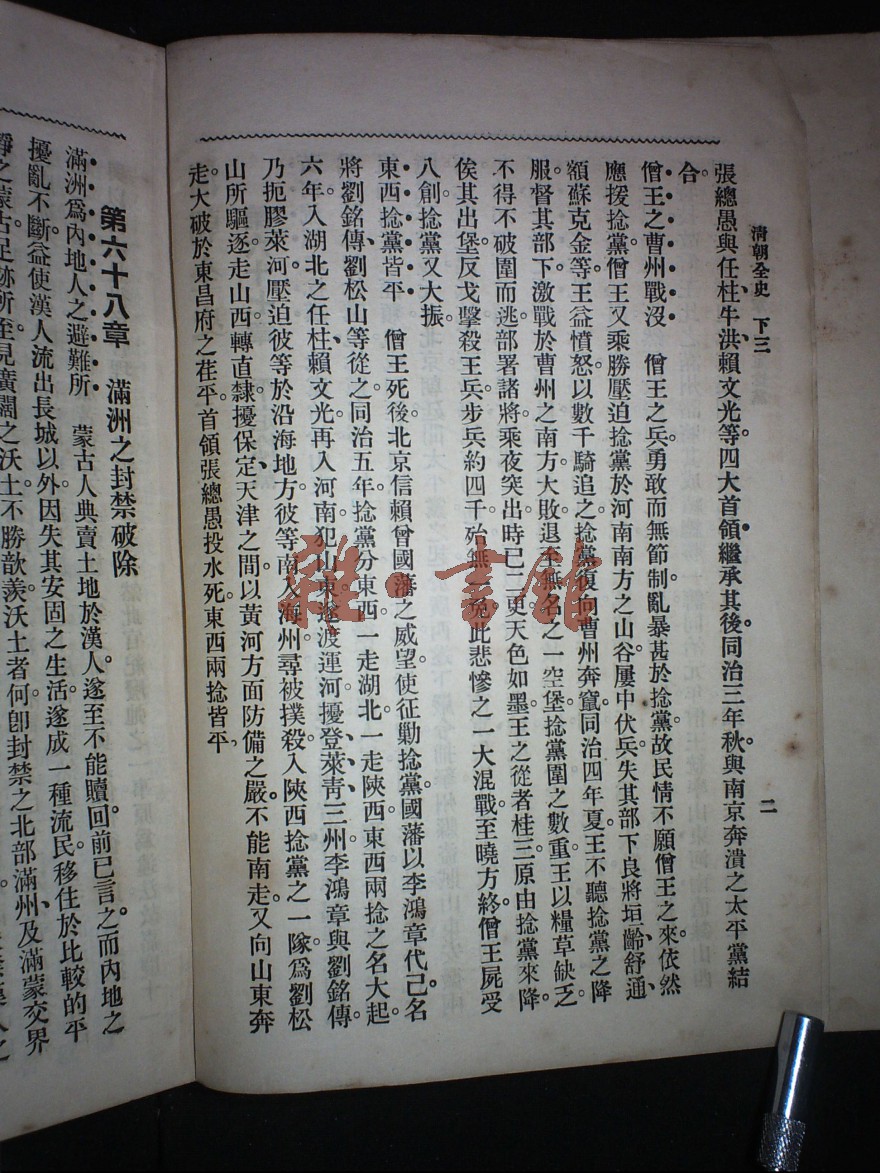 清朝全史　下三
二
張總愚與任柱、牛洪、賴文光等四大首領繼承其後。同治三年秋。與南京奔潰之太平黨結
合。
僧王之曹州戰沒　僧王之兵勇敢而無節制亂暴甚於捻黨。故民情不願僧王之來。依然
應援捻黨。僧王又乘勝壓迫捻黨於河南南方之山谷。屢中伏兵。失其部下良將垣齡、舒通
額、蘇克金等。王益憤怒。以數千騎追之。捻黨復向曹州奔竄。同治四年夏。王不聽捻黨之降
服。督其部下激戰於曹州之南方。大敗。退至無名之一空堡。捻黨圍之數重。王以糧草缺乏
不得不破圍而逃。部署諸將。乘夜突出。時已二更。天色如墨。王之從者桂三。原由捻黨來降。
俟其出堡。反戈擊殺王兵。步兵約四千殆無一免。此悲慘之一大混戰。至曉方終。僧王屍受
八創。捻黨又大振。
東西捻黨皆平　僧王死後。北京信賴曾國藩之威望。使征勦捻黨。國藩以李鴻章代己。名
將劉銘傳、劉松山等從之。同治五年。捻黨分東西。一走湖北。一走陝西。東西兩捻之名大起。
六年。入湖北之任柱、賴文光。再入河南。犯山東。遂渡運河。擾登、萊、青三州。李鴻章與劉銘傳。
乃扼膠萊河。壓迫彼等於沿海地方。彼等南入海州。尋被撲殺。入陝西捻黨之一隊。爲劉松
山所驅逐。走山西。轉直隸。擾保定、天津之間。以黃河方面防備之嚴。不能南走。又向山東奔
走。大破於東昌府之茌平。首領張總愚投水死。東西兩捻皆平。
第六十八章　滿洲之封禁破除
滿洲爲內地人之避難所　蒙古人典賣土地於漢人。遂至不能贖回。前已言之。而內地之
擾亂不斷。益使漢人流出長城以外。因失其安固之生活。遂成一種流民。移住於比較的平
靜之蒙古。足跡所至。見廣闊之沃土。不勝歆羨。沃土者何。卽封禁之北部滿州。及滿蒙交界
雜·書館